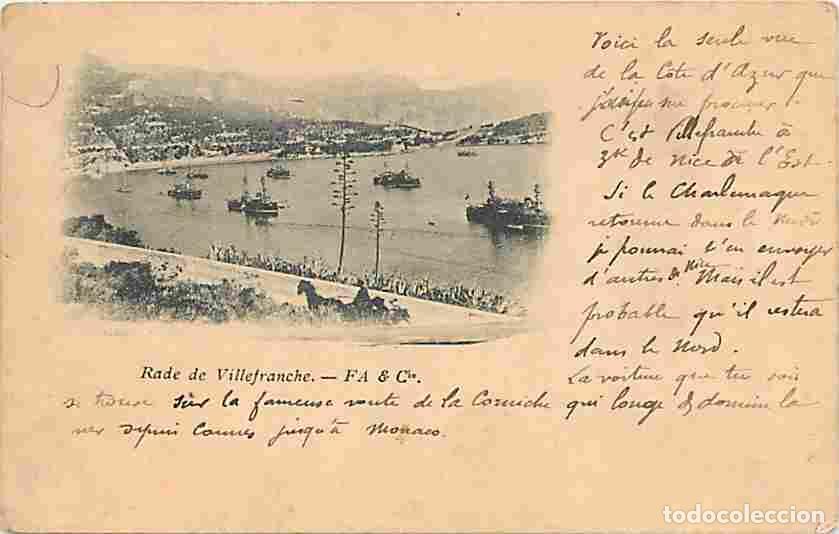 Voici la seule vue
de la Côte d'Azur que
j'ai pu me procurer.
C'est Villefranche à
3k de Nice de l'Est.
Si le Charlemagne
retourne dans le Midi
je pourrai t'en envoyer
d'autres de Nice. Mais il est
probable qu'il restera
dans le Nord.
La voiture que tu vois
Rade de Villefranche. — FA & Cie.
se trouve sur la fameuse route de la Corniche qui longe & domine la
mer depuis Cannes jusqu'à Monaco.
todocoleccion